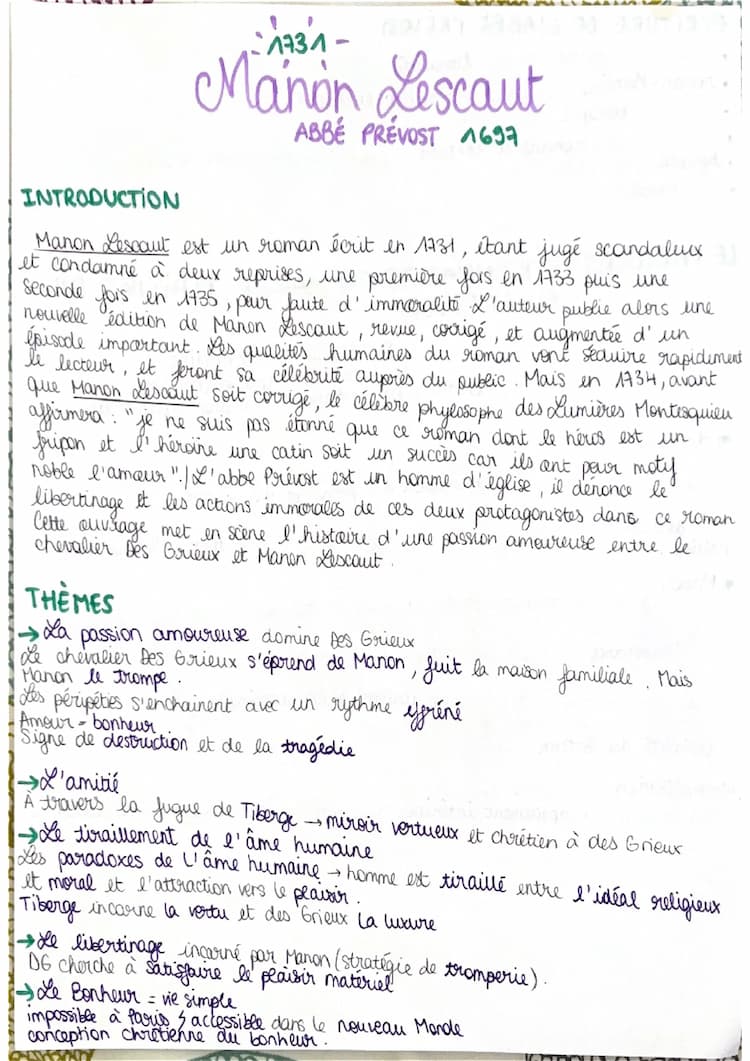 -1731-
Manon Lescaut
ABBÉ PRÉVOST 1697
INTRODUCTION
Manon Lescaut est un roman écrit en 1731, étant jugé scandaleux
et condamné à deux reprises, une première fois en 1733 puis une
seconde fois en 1735, pour faute d'immoralité. L'auteur publie alors une
nouvelle édition de Manon Lescaut, revue, corrigé, et augmentée d'un
épisode important. Les qualités humaines du roman vont séduire rapidument
le lecteur, et feront sa célébrité auprès du public. Mais en 1734, avant
que Manon Lescaut soit corrigé, le célèbre phylosophe des Lumières Montesquieu
affirmera : "je ne suis pas étonné que ce roman dont le héros est un
fripon et l'héroïne une catin soit un succès car ils ont pour motif
noble l'amour"./L'abbé Prévost est un homme d'église, il dénonce le
libertinage et les actions immorales de ces deux protagonistes dans ce roman
Cette ouvrage met en scène l'histoire d'une passion amoureuse entre le
chevalier Des Grieux et Manon Lescaut.
THÈMES
→ La passion amoureuse domine Des Grieux
Le chevalier Des Grieux s'éprend de Manon, fuit la maison familiale. Mais
Manon le trompe.
Les péripéties s'enchainent avec un rythme effréné
Amour = bonheur
Signe de destruction et de la tragédie
→ L'amitié
À travers la fugue de Tiberge → miroir vertueux et chrétien à des Grieux
→ Le tiraillement de l'âme humaine
Les paradoxes de L'âme humaine → homme est tiraillé entre l'idéal religieux
et moral et l'attraction vers le plaisir.
Tiberge incarne la vertu et des Grieux La luxure
→ Le libertinage incarné par Manon (stratégie de tromperie).
DG cherche à satisfaire le plaisir matériel
→ Le Bonheur = vie simple
impossible à Paris accessible dans le nouveau Monde
conception chrétienne du bonheur.